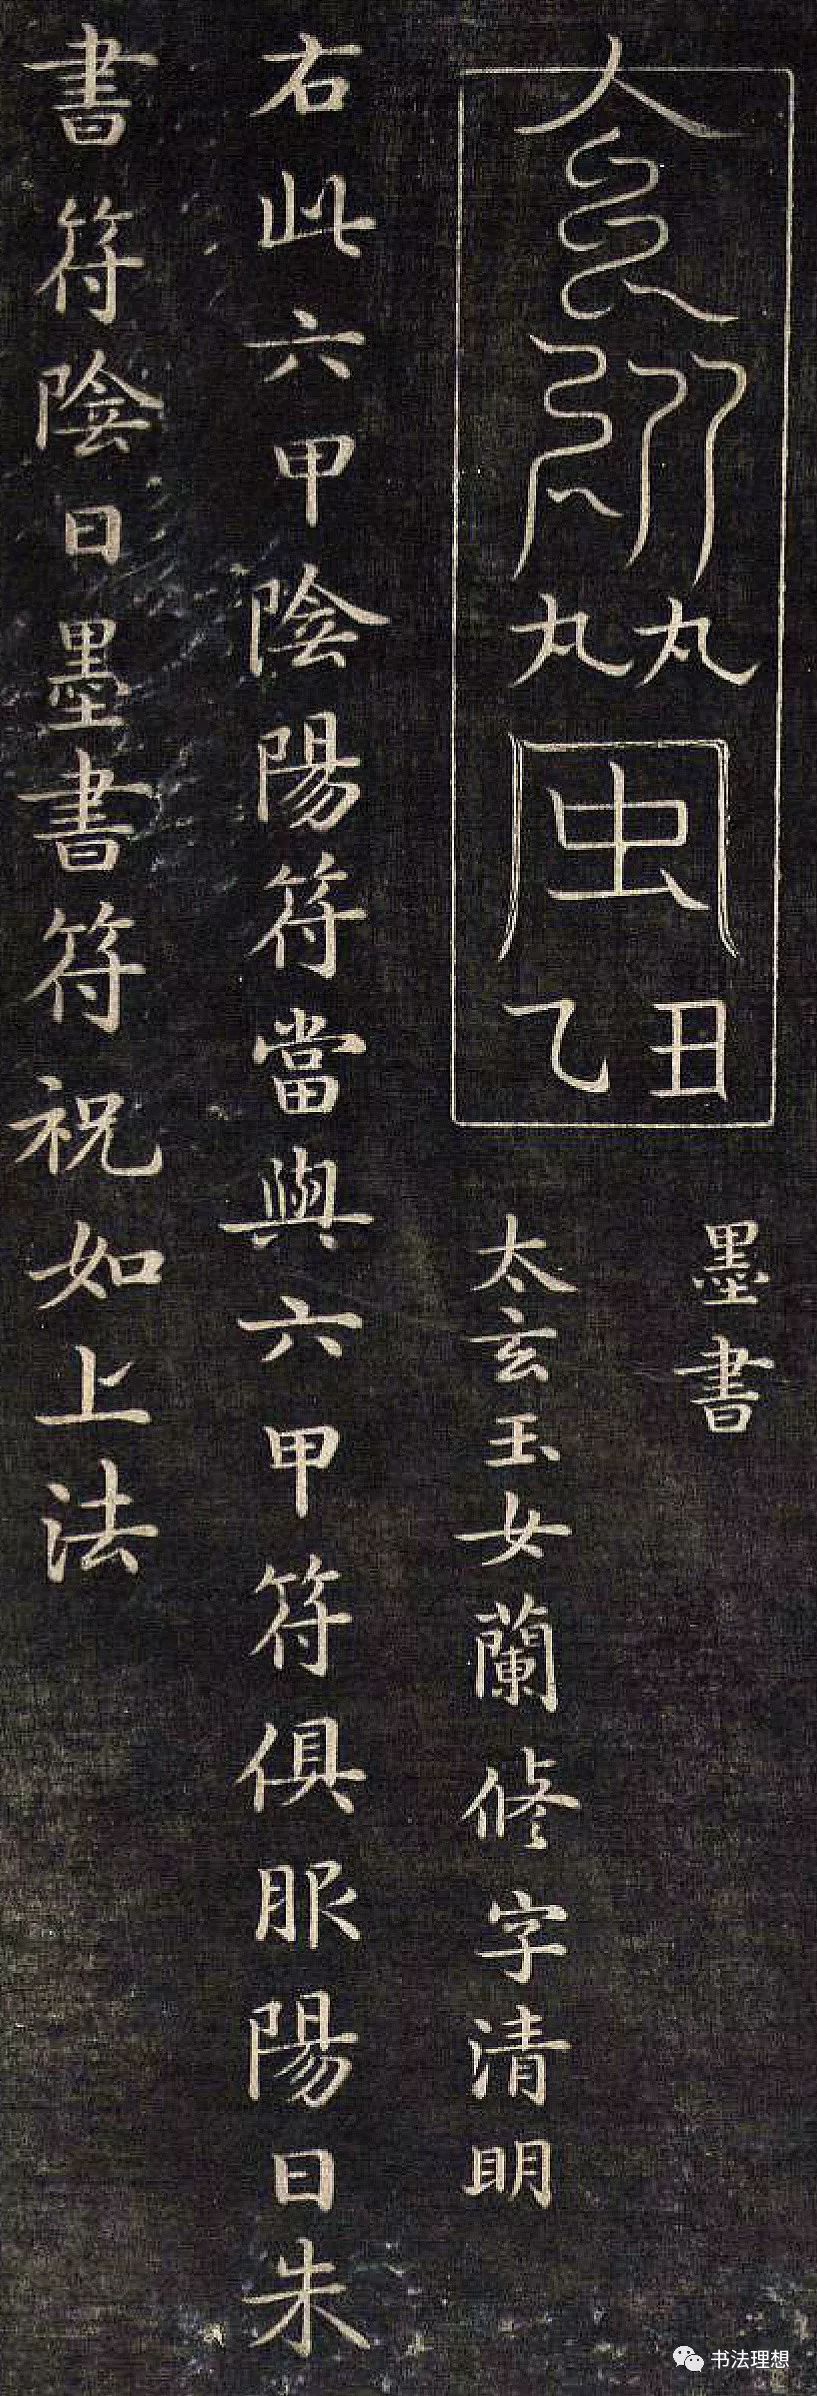 丸丸
虫
丑
乙
墨書
太玄玉女蘭修字清明
右此六甲陰陽符當與六甲符俱服陽日朱
書符陰日墨書符祝如上法
书法理想